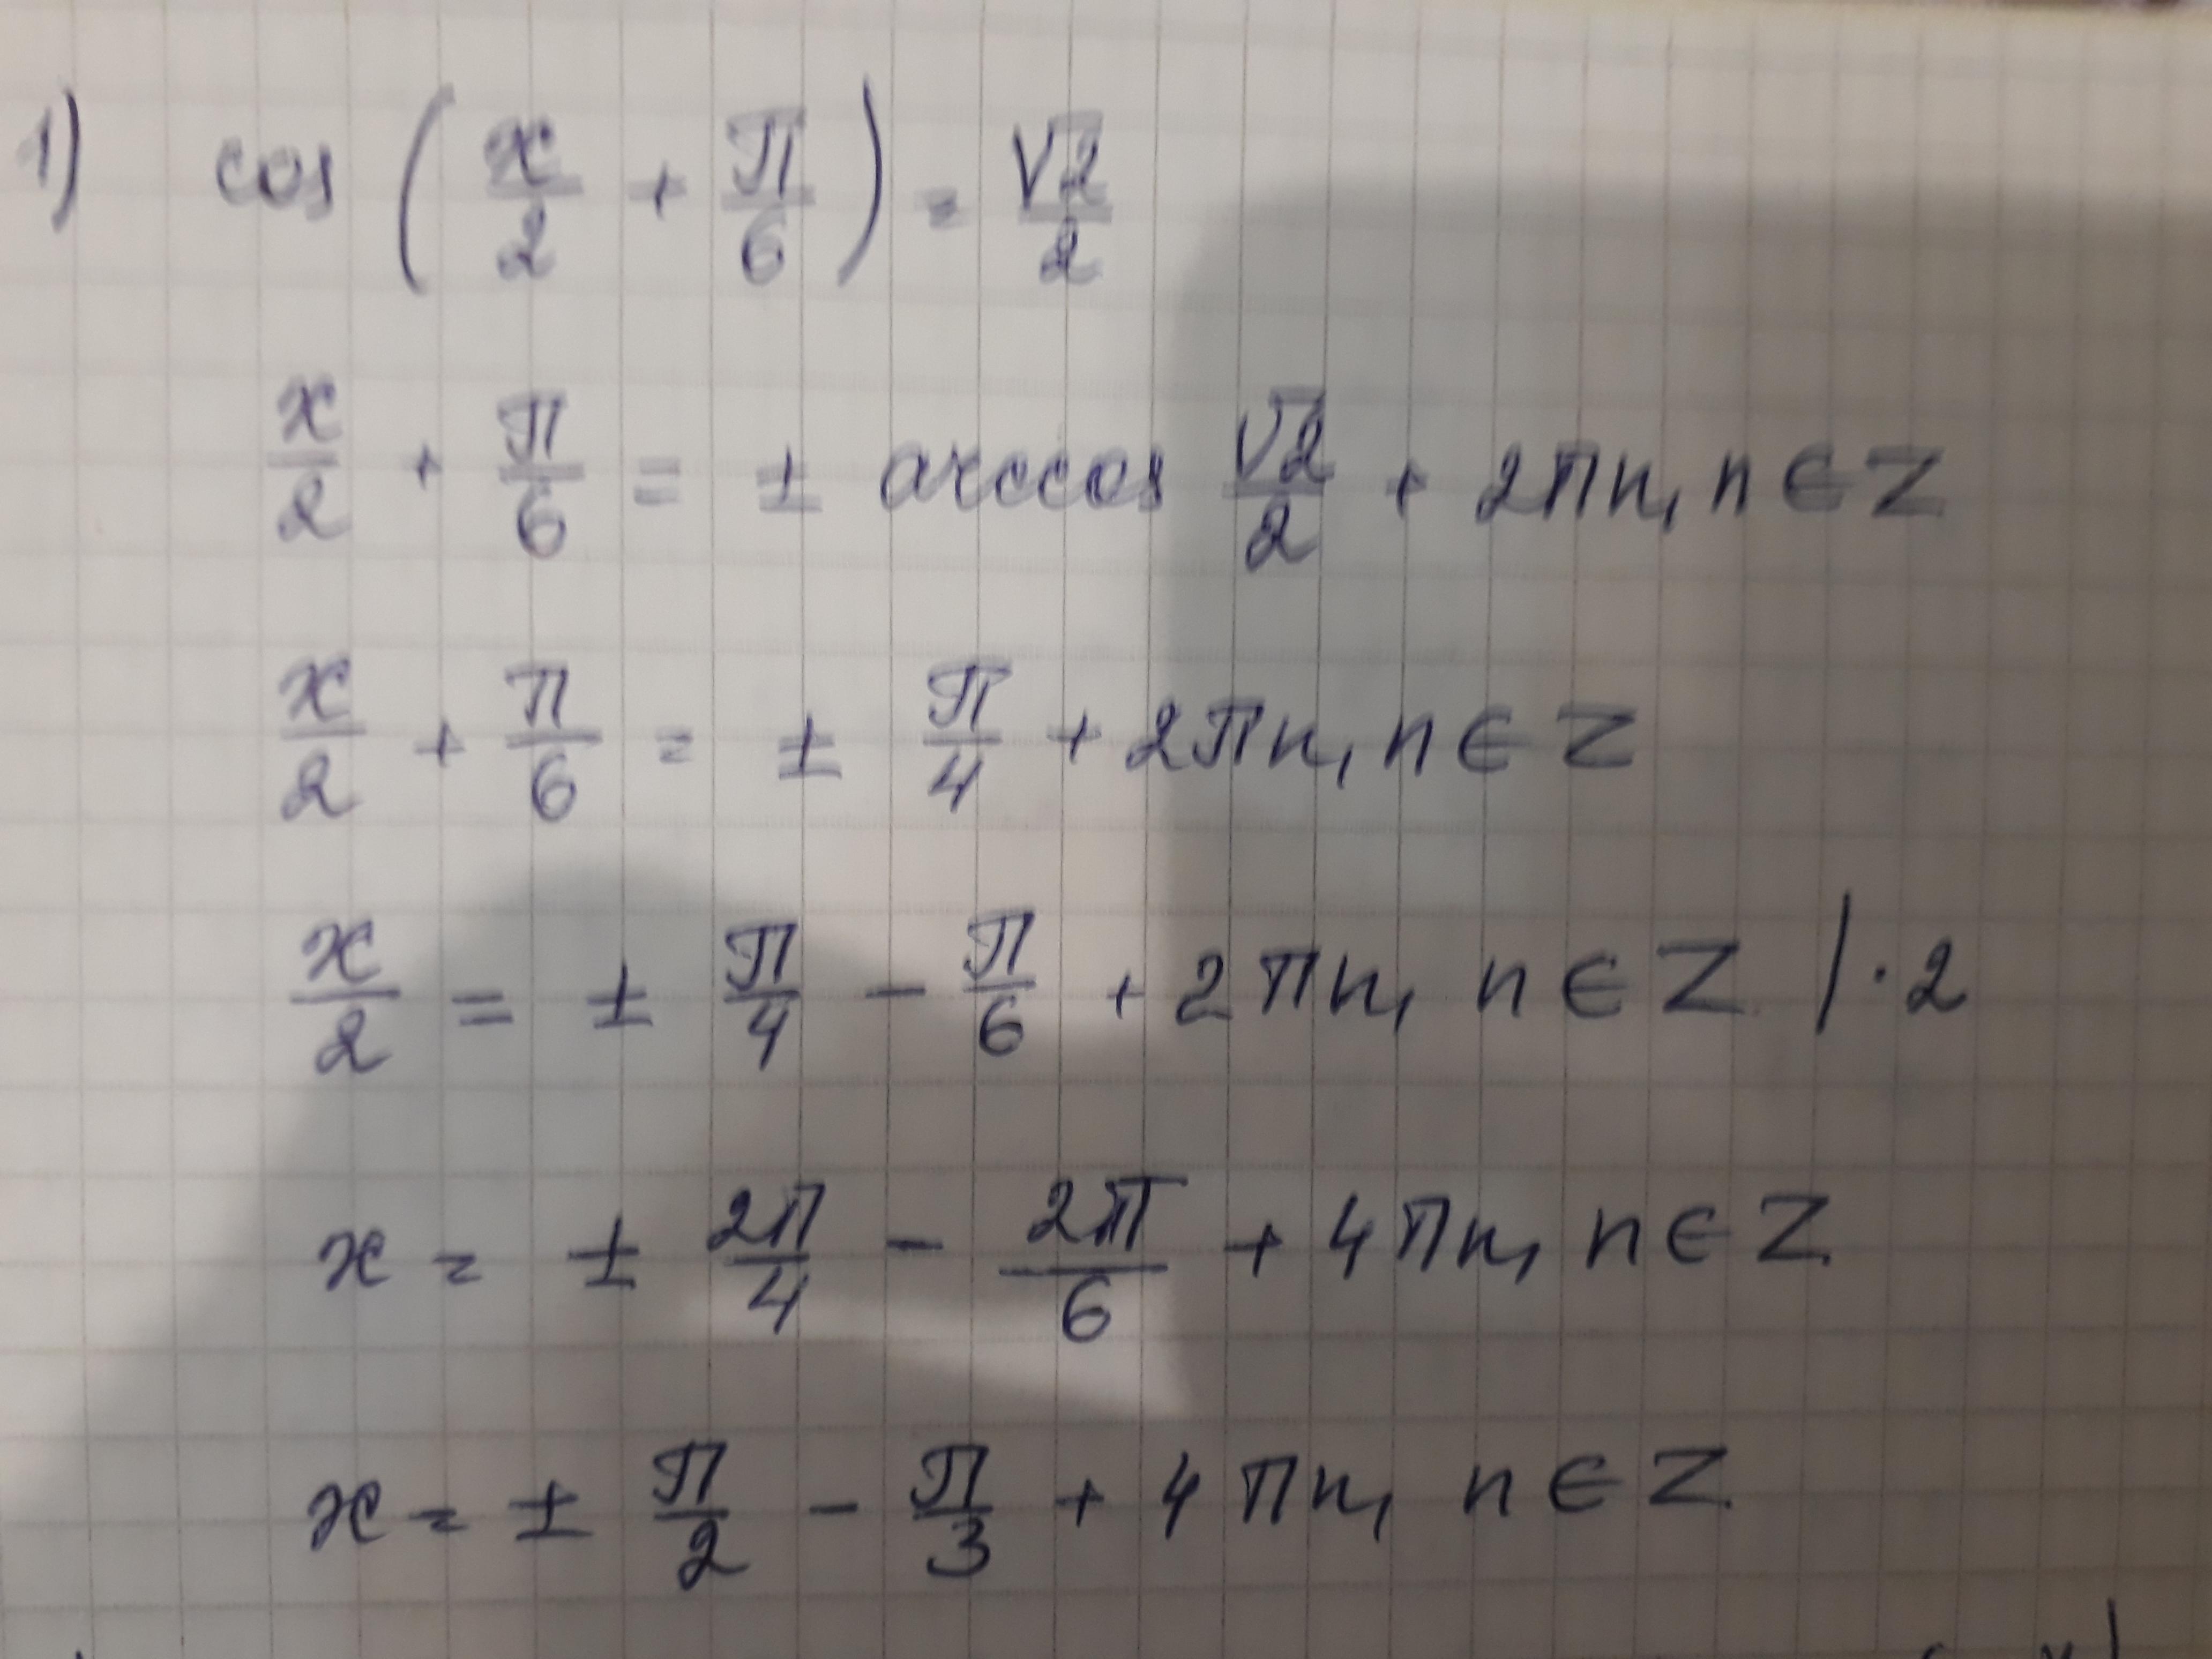 1) cos (x/2 + π/6) = √2/2
x/2 + π/6 = ± arccos √2/2 + 2πn, n ∈ Z
x/2 + π/6 = ± π/4 + 2πn, n ∈ Z
x/2 = ± π/4 - π/6 + 2πn, n ∈ Z | · 2
x = ± 2π/4 - 2π/6 + 4πn, n ∈ Z
x = ± π/2 - π/3 + 4πn, n ∈ Z